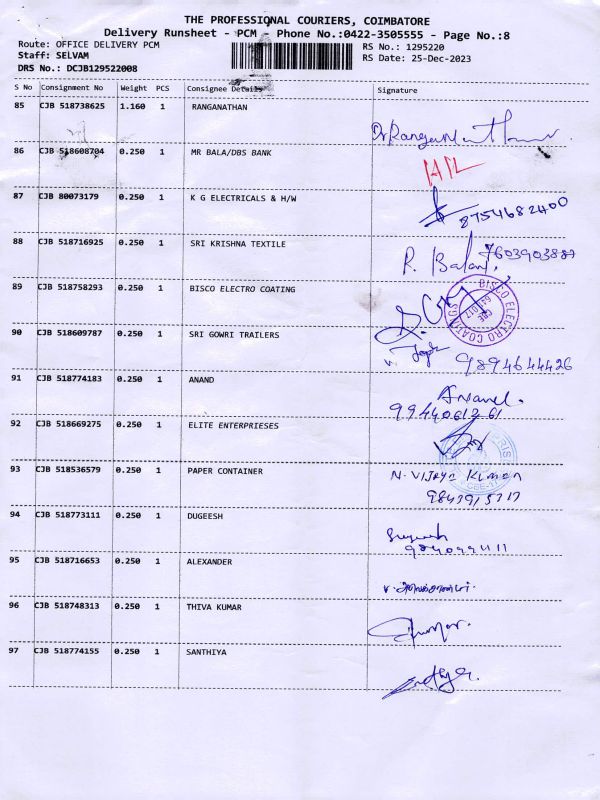 THE PROFESSIONAL COURIERS, COIMBATORE
Delivery Runsheet - PCM - Phone No.:0422-3505555 - Page No.:8
Route: OFFICE DELIVERY PCM RS No.: 1295220
Staff: SELVAM RS Date: 25-Dec-2023
DRS No.: DCJB129522008
S No Consignment No Weight PCS Consignee Details Signature
85 CJB 518738625 1.160 1 RANGANATHAN
86 CJB 518608704 0.250 1 MR BALA/DBS BANK
87 CJB 80073179 0.250 1 K G ELECTRICALS & H/W
8754682400
88 CJB 518716925 0.250 1 SRI KRISHNA TEXTILE
7603903887
89 CJB 518758293 0.250 1 BISCO ELECTRO COATING
BISCO ELECTRO COATINGS
90 CJB 518609787 0.250 1 SRI GOWRI TRAILERS
9894644426
91 CJB 518774183 0.250 1 ANAND
Anand.
9944061261
92 CJB 518669275 0.250 1 ELITE ENTERPRIESES
93 CJB 518536579 0.250 1 PAPER CONTAINER
N. VIJAYA KUMAR
94 CJB 518773111 0.250 1 DUGEESH
95 CJB 518716653 0.250 1 ALEXANDER
96 CJB 518748313 0.250 1 THIVA KUMAR
97 CJB 518774155 0.250 1 SANTHIYA